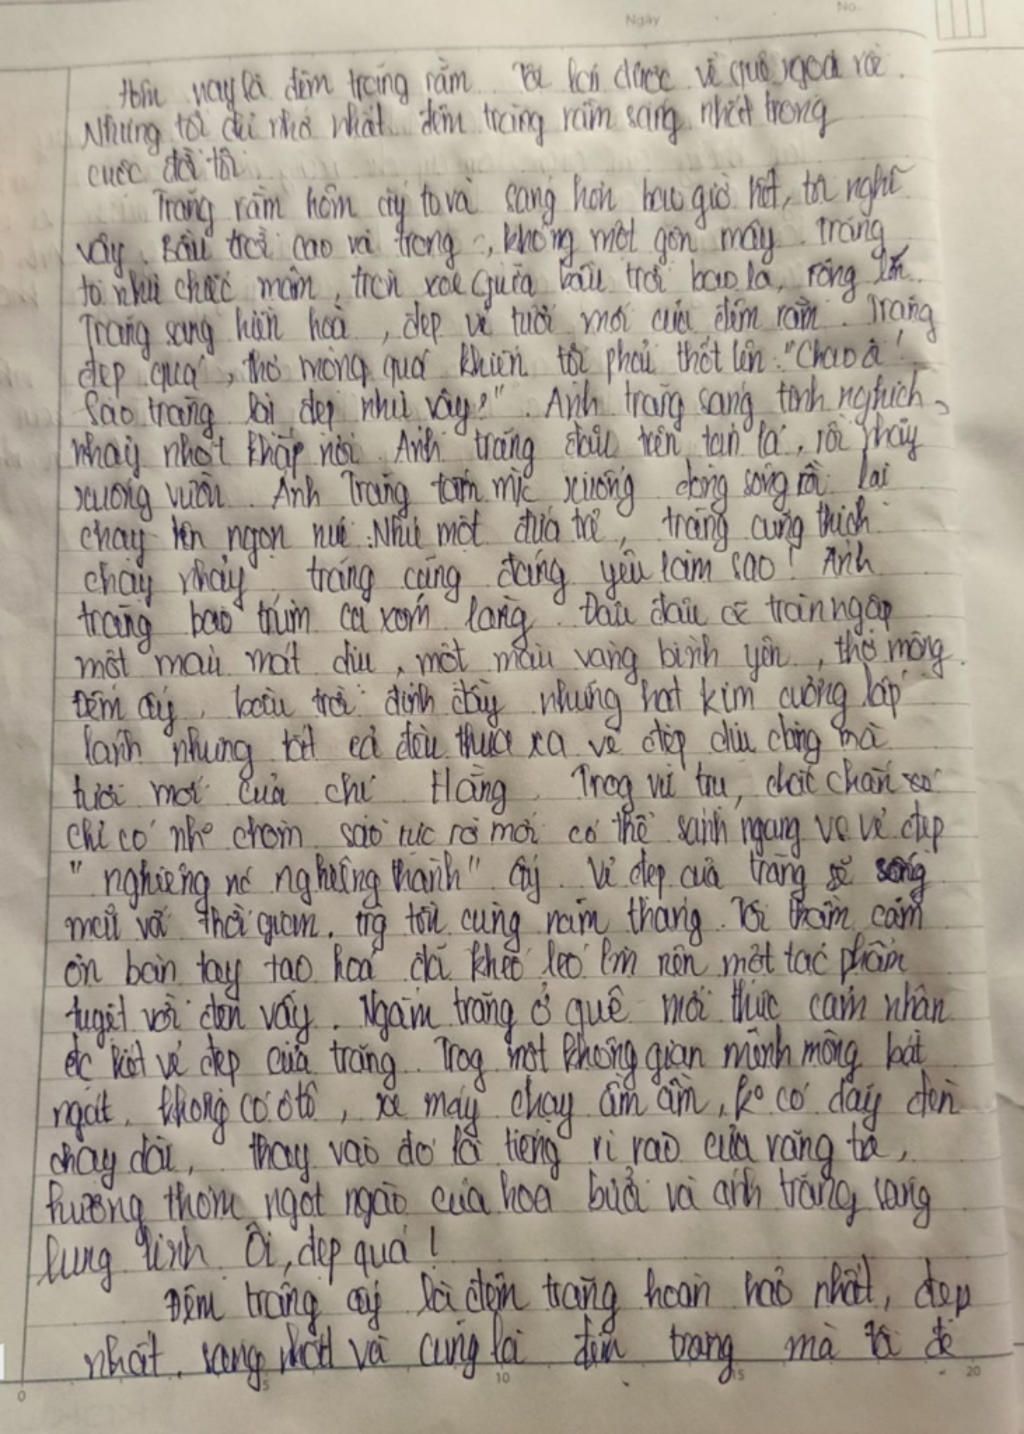 Ngày
No.
Hôm nay là đêm trăng rằm. Tôi được về quê ngoại rồi.
Nhưng tôi chỉ nhớ nhất đêm trăng rằm sáng nhất trong
cuộc đời tôi.
Trăng rằm hôm ấy to và sáng hơn bao giờ hết, tôi nghĩ
vậy. Bầu trời cao và trong, không một gợn mây. Trăng
to như chiếc mâm, tròn xoe giữa bầu trời bao la, rộng lớn.
Trăng sáng hiền hoà, đẹp vẻ tươi mới của đêm rằm. Trăng
đẹp quá, thơ mộng quá khiến tôi phải thốt lên: "Chao ôi!
Sao trăng lại đẹp như vậy?". Ánh trăng sáng tinh nghịch,
nhảy nhót khắp nơi. Ánh trăng đậu trên tán lá, rồi nhảy
xuống vườn. Ánh Trăng tắm mic xuống dòng sông rồi lại
chạy lên ngọn núi. Như một đứa trẻ, trăng cũng thích
chạy nhảy, trăng cũng đáng yêu làm sao! Ánh
trăng bao trùm cả xóm làng. Đâu đâu cx tràn ngập
một màu mát dịu, một màu vàng bình yên, thơ mộng.
Đêm ấy, bầu trời đính đầy những hạt kim cương lấp
lánh nhưng tất cả đều thua xa vẻ đẹp dịu dàng mà
tươi mới của chị Hằng. Trog vũ trụ, chắc chắn
chỉ có chòm sao rực rỡ mới có thể sánh ngang vs vẻ đẹp
"nghiêng nước nghiêng thành" ấy. Vẻ đẹp của trăng sẽ sống
mãi với thời gian, trg tồn cùng năm tháng. Tôi thầm cảm
ơn bàn tay tạo hoá đã khéo léo lm nên một tác phẩm
tuyệt vời đến vậy. Ngắm trăng ở quê mới thực cảm nhận
đc hết vẻ đẹp của trăng. Trog một không gian mênh mông bát
ngát, không có ô tô, xe máy chạy ầm ầm, ko có dãy đèn
chạy dài, thay vào đó là tiếng rì rào của rặng tre,
hương thơm ngọt ngào của hoa bưởi và ánh trăng sáng
lung linh. Ôi, đẹp quá!
Đêm trăng ấy là đêm trăng hoàn hảo nhất, đẹp
nhất, sáng nhất và cũng là đêm trăng mà tôi để
0 5 10 15 20